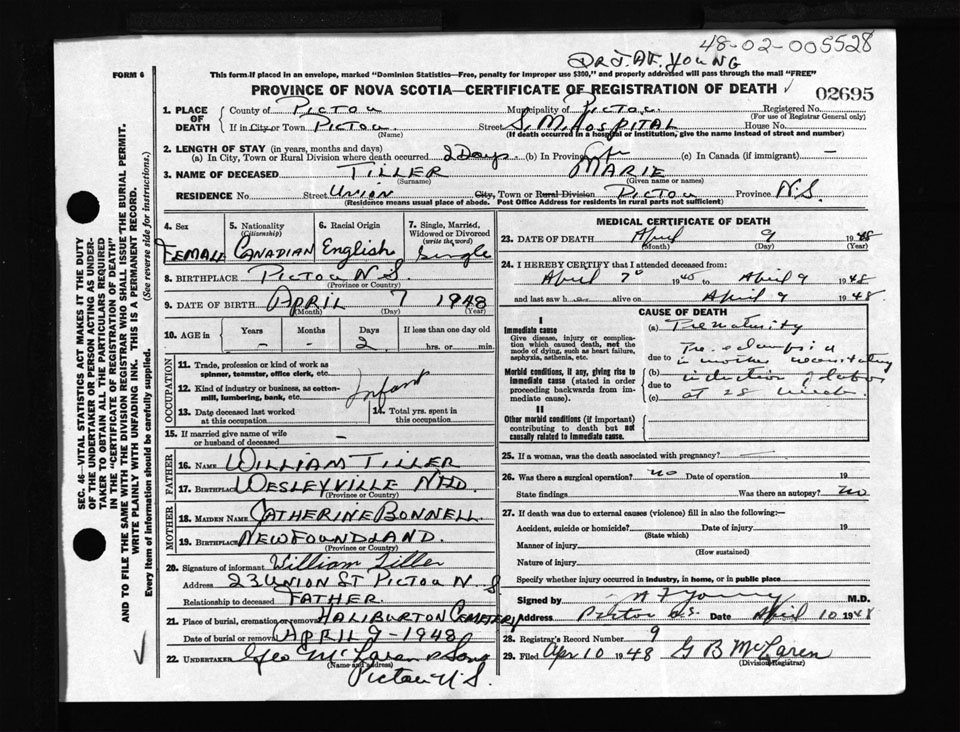 48-02-005528
DR J. AF. YOUNG
FORM 6
This form if placed in an envelope, marked "Dominion Statistics—Free, penalty for improper use $300," and properly addressed will pass through the mail "FREE"
PROVINCE OF NOVA SCOTIA—CERTIFICATE OF REGISTRATION OF DEATH
02695
1. PLACE OF DEATH
County of PICTOU Municipality of PICTOU Registered No.
(For use of Registrar General only)
If in City or Town PICTOU Street S. M. HOSPITAL House No.
(Name) (If death occurred in a hospital or institution, give the name instead of street and number)
2. LENGTH OF STAY (in years, months and days)
(a) In City, Town or Rural Division where death occurred 2 Days. (b) In Province (c) In Canada (if immigrant) —
3. NAME OF DECEASED TILLER MARIE
(Surname) (Given name or names)
RESIDENCE No Street UNION City, Town or Rural Division PICTOU Province N.S.
(Residence means usual place of abode. Post Office Address for residents in rural parts not sufficient)
4. Sex
FEMALE
5. Nationality (Citizenship)
CANADIAN
6. Racial Origin
English
7. Single, Married, Widowed or Divorced (write the word)
Single
8. BIRTHPLACE PICTOU N.S.
(Province or Country)
9. DATE OF BIRTH APRIL 7 1948
(Month) (Day) (Year)
10. AGE in Years Months Days If less than one day old
- - 2 hrs. or min.
OCCUPATION
11. Trade, profession or kind of work as spinner, teamster, office clerk, etc.
12. Kind of industry or business, as cotton-mill, lumbering, bank, etc.
Infant
13. Date deceased last worked at this occupation
14. Total yrs. spent in this occupation
15. If married give name of wife or husband of deceased —
FATHER
16. NAME WILLIAM TILLER
17. BIRTHPLACE WESLEYVILLE NFLD.
(Province or Country)
MOTHER
18. MAIDEN NAME CATHERINE BONNELL
19. BIRTHPLACE NEWFOUNDLAND.
(Province or Country)
20. Signature of informant William Tiller
Address 23 UNION ST PICTOU N.S
Relationship to deceased FATHER.
21. Place of burial, cremation or removal HALIBURTON CEMETERY
Date of burial or removal APRIL 9-1948
22. UNDERTAKER Geo McLaren & Sons
(Name and address)
Pictou N.S.
MEDICAL CERTIFICATE OF DEATH
23. DATE OF DEATH April 9 1948
(Month) (Day) (Year)
24. I HEREBY CERTIFY that I attended deceased from:
April 7 1948 to April 9 1948
and last saw h alive on April 9 1948
CAUSE OF DEATH
I
Immediate cause
Give disease, injury or complication which caused death, not the mode of dying, such as heart failure, asphyxia, asthenia, etc.
(a) Prematurity
due to
Pre eclampsia
Morbid conditions, if any, giving rise to immediate cause (stated in order proceeding backwards from immediate cause).
(b) in mother necessitating
due to induction of labor
(c) at 28 weeks.
II
Other morbid conditions (if important) contributing to death but not causally related to immediate cause.
25. If a woman, was the death associated with pregnancy?
26. Was there a surgical operation? no Date of operation 19
State findings Was there an autopsy? no
27. If death was due to external causes (violence) fill in also the following:—
Accident, suicide or homicide? Date of injury 19
(State which)
Manner of injury
(How sustained)
Nature of injury
Specify whether injury occurred in industry, in home, or in public place
Signed by A F Young M.D.
Address Pictou N.S. Date April 10 1948
28. Registrar's Record Number 9
29. Filed Apr 10 1948 G B McLaren
(Division Registrar)
SEC. 46—VITAL STATISTICS ACT MAKES IT THE DUTY
OF THE UNDERTAKER OR PERSON ACTING AS UNDER-
TAKER TO OBTAIN ALL THE PARTICULARS REQUIRED
IN THE "CERTIFICATE OF REGISTRATION OF DEATH"
AND TO FILE THE SAME WITH THE DIVISION REGISTRAR WHO SHALL ISSUE THE BURIAL PERMIT.
WRITE PLAINLY WITH UNFADING INK. THIS IS A PERMANENT RECORD.
Every item of information should be carefully supplied. (See reverse side for instructions.)